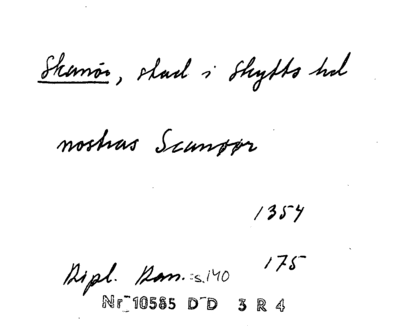 Skanör, stad i Skytts hd
nostras Scanøør
1354
Dipl. Dan. s.140 175
Nr 10585 D D 3 R 4